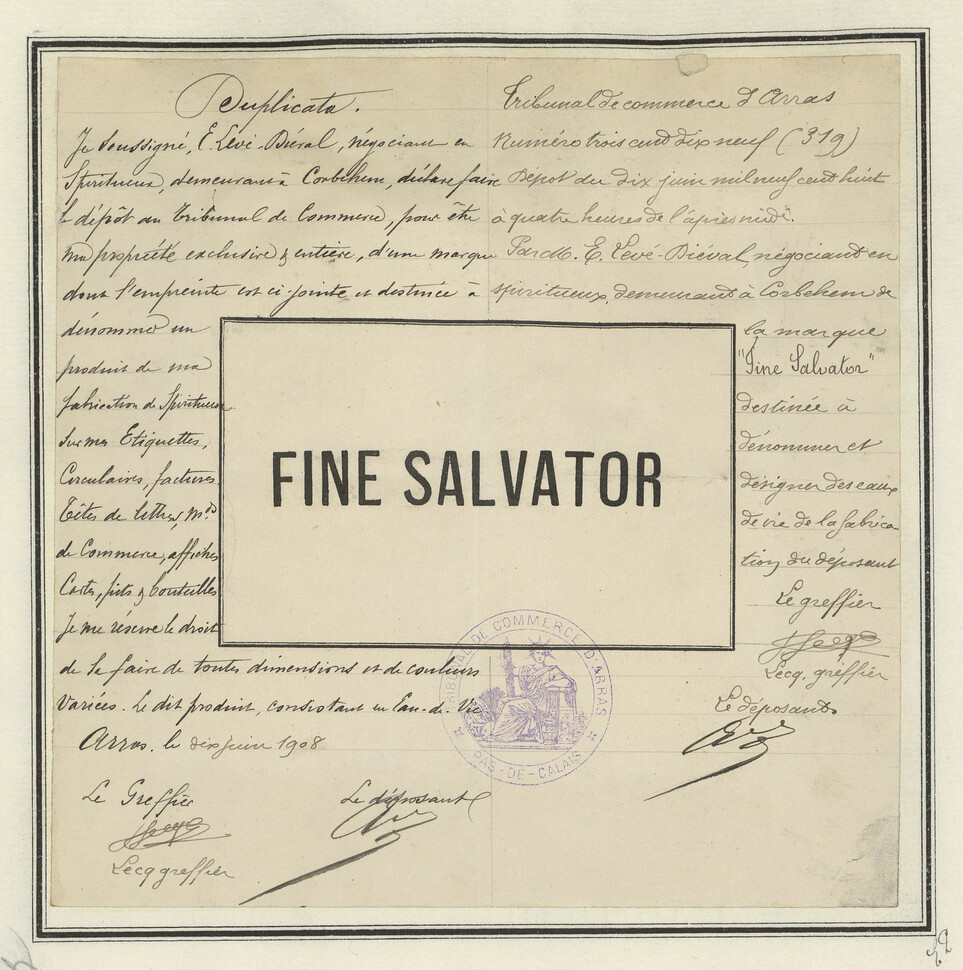 Duplicata.
Je soussigné, E. Levé-Biéval, négociant en
Spiritueux, demeurant à Corbehem, déclare faire
le dépôt au Tribunal de Commerce, pour être
ma propriété exclusive & entière, d'une marque
dont l'empreinte est ci-jointe et destinée à
dénommer un
produit de ma
fabrication de Spiritueux
sur mes Etiquettes,
Circulaires, factures
Têtes de lettres,
de Commerce, affiches
Cartes, fûts & bouteilles
Je me réserve le droit
de la faire de toutes dimensions et de couleurs
variées. Le dit produit, consistant en Eau-de-Vie.
Arras, le dix juin 1908
Le Greffier
Lecq greffier
Le déposant
FINE SALVATOR
Tribunal de commerce d'Arras
Numéro trois cent dix neuf (319)
Dépôt du dix juin mil neuf cent huit
à quatre heures de l'après midi.
Par M. E. Levé-Biéval, négociant en
spiritueux, demeurant à Corbehem de
la marque
"Fine Salvator"
destinée à
dénommer et
désigner des eaux
de vie de la fabrica
tion du déposant
Le greffier
Lecq. greffier
Le déposant
TRIBUNAL DE COMMERCE D'ARRAS
PAS-DE-CALAIS